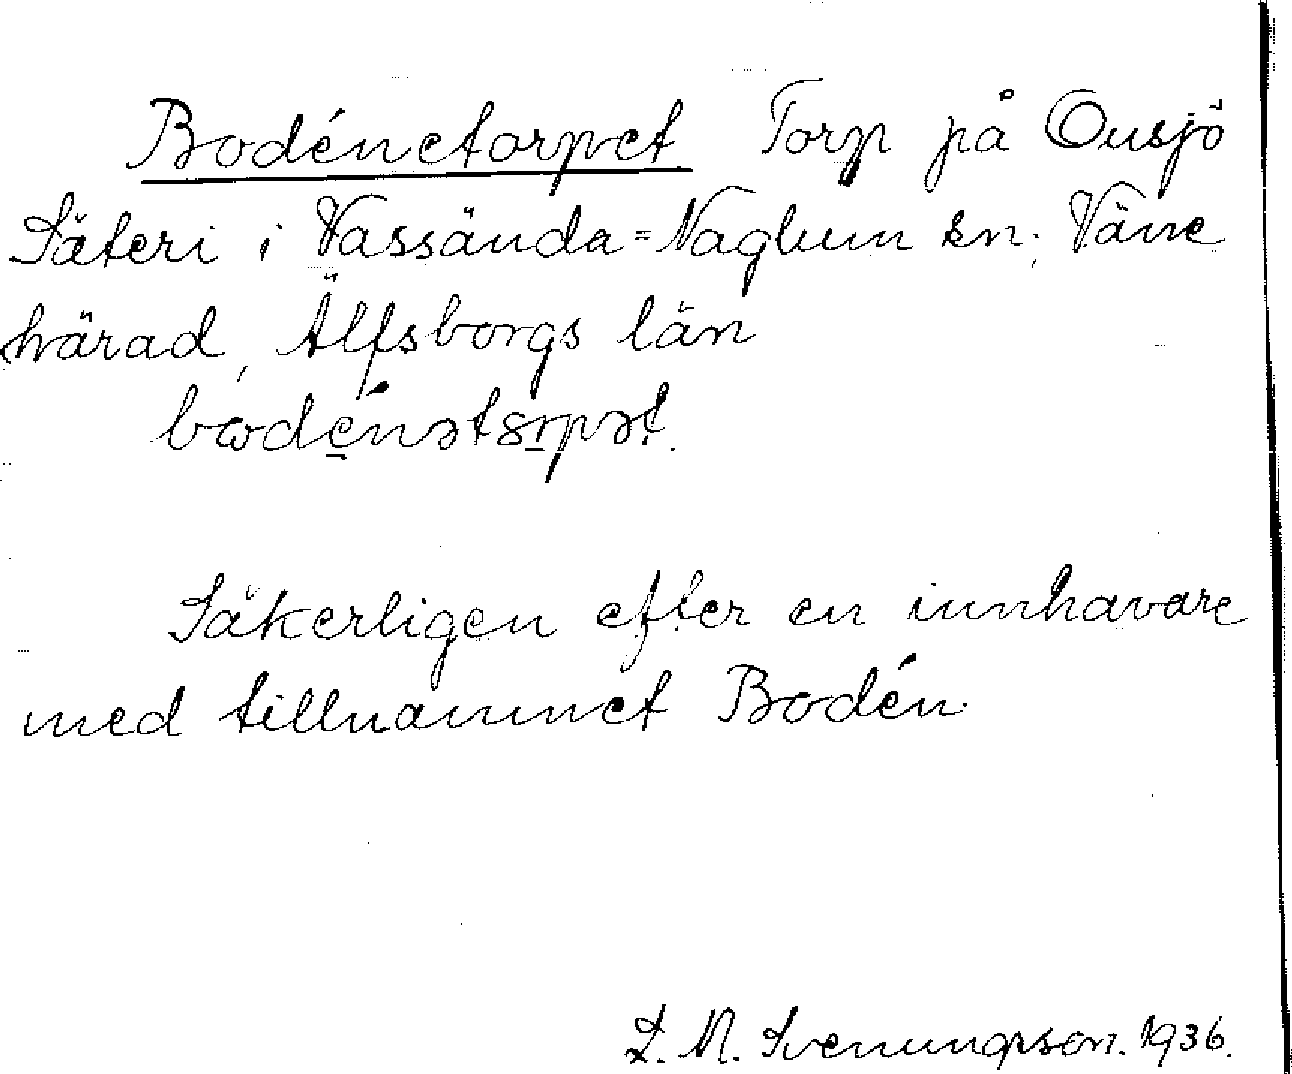 Bodénetorpet Torp på Onsjö
Säteri i Vassända=Naglum sn; Väne
härad, Älfsborgs län
Säkerligen efter en innhavare
med tillnamnet Bodén.
L. M. Svenungsson. 1936.